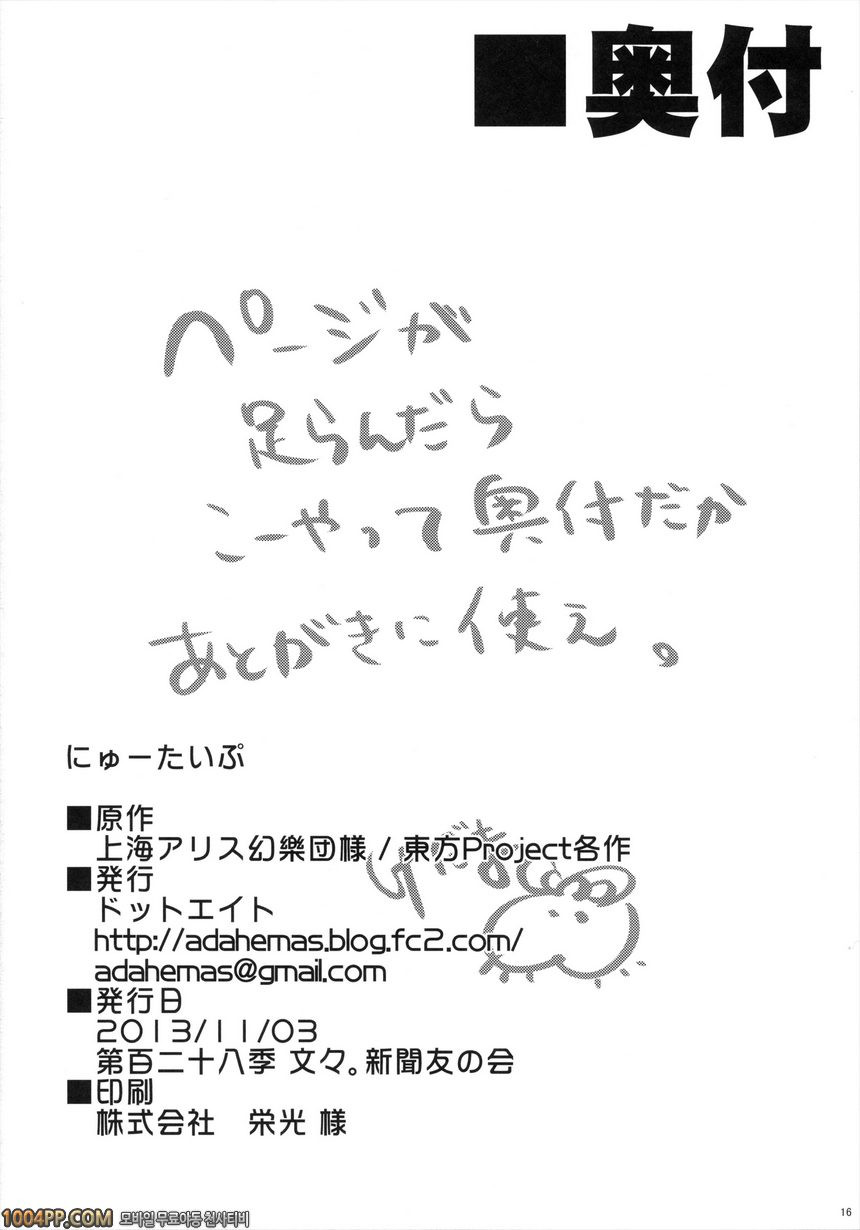 ■奥付
ページが
足らんだら
こーやって奥付だか
あとがきに使え。
にゅーたいぷ
■原作
上海アリス幻樂団様 / 東方Project各作
■発行
ドットエイト
http://adahemas.blog.fc2.com/
adahemas@gmail.com
■発行日
2013/11/03
第百二十八季 文々。新聞友の会
■印刷
株式会社 栄光 様
16
1004PP.COM 모바일 무료야동 천사티비